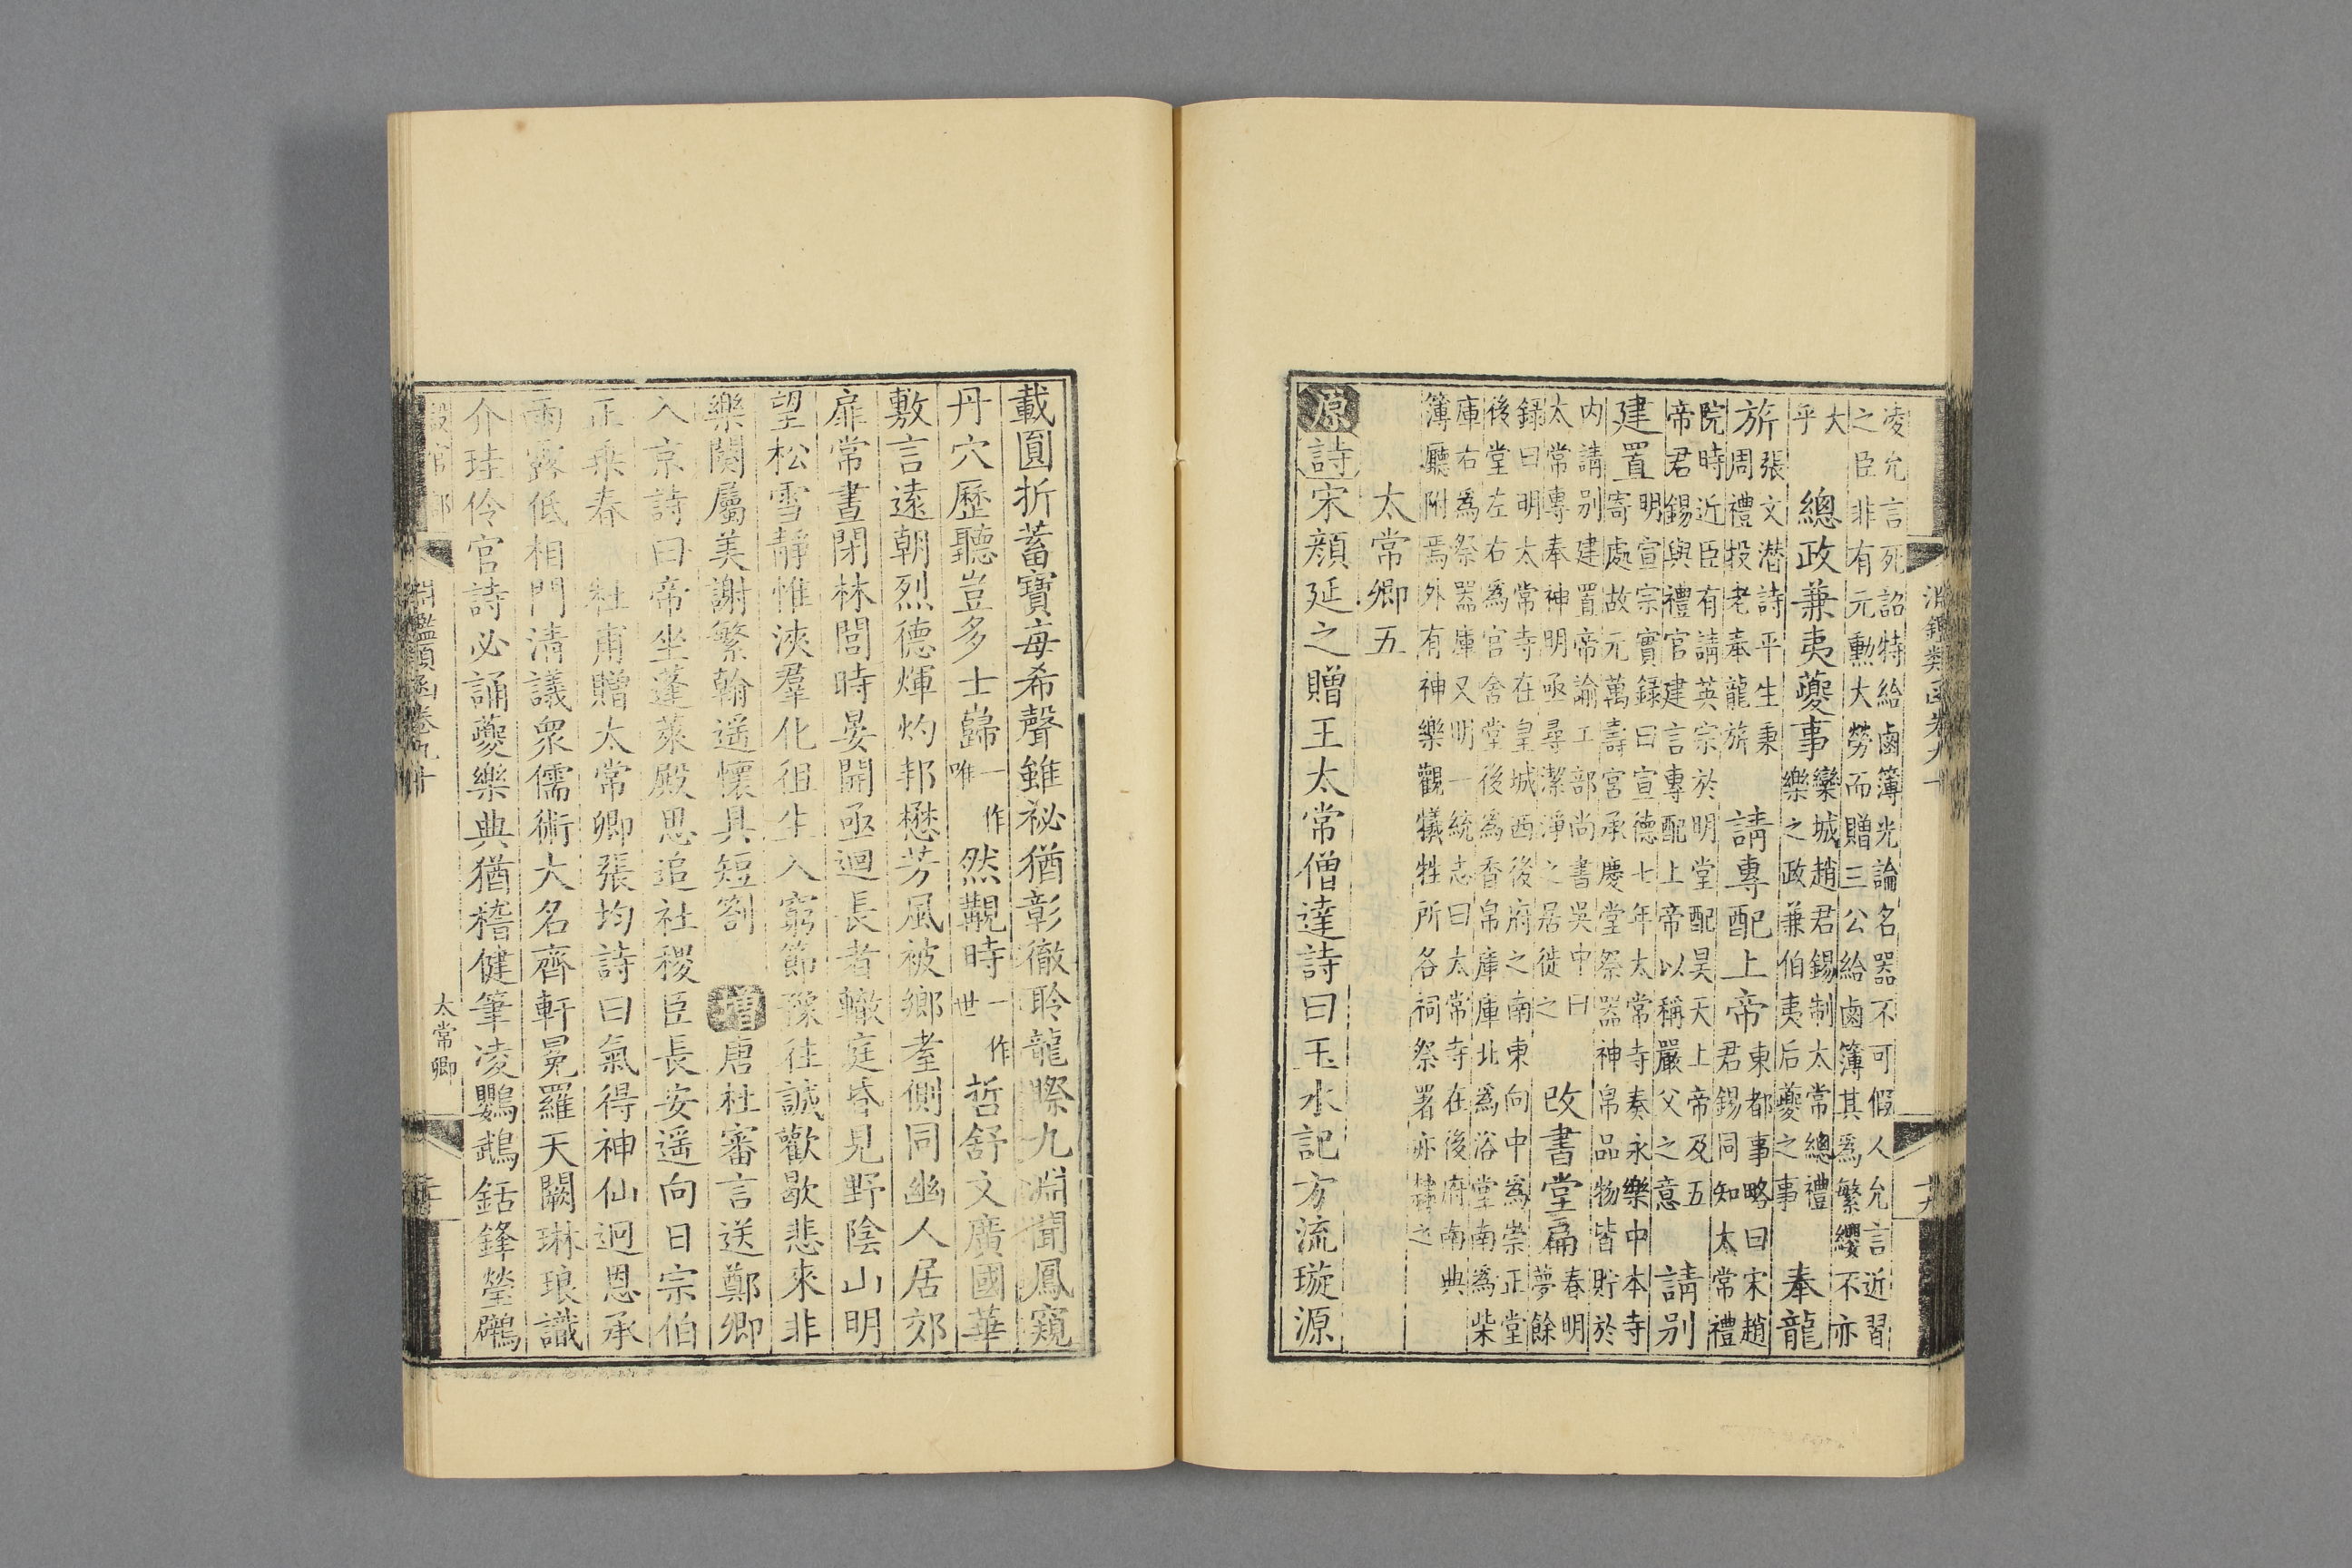 凌允言死詔特給鹵簿光論名器不可假人允言近習
之臣非有元勳大勞而贈三公給鹵簿其為繁纓不亦
大
乎
總政兼夷夔事
欒城趙君錫制太常總禮
樂之政兼伯夷后夔之事
奉龍
旂
張文潛詩平生秉
周禮投老奉龍旂
請專配上帝
東都事略曰宋趙
君錫同知太常禮
院時近臣有請英宗於明堂配昊天上帝及五
帝君錫與禮官建言專配上帝以稱嚴父之意
請别
建置
明宣宗實録曰宣德七年太常寺奏永樂中本寺
寄處故元萬壽宮承慶堂祭器神帛品物皆貯於
内請别建置帝諭工部尚書吳中曰
太常專奉神明亟尋潔淨之居徙之
改書堂扁
春明
夢餘
録曰明太常寺在皇城西後府之南東向中為崇正堂
後堂左右為宮舍堂後為香帛庫庫北為浴堂南為柴
庫右為祭器庫又明一統志曰太常寺在後府南典
簿廳附焉外有神樂觀犧牲所各祠祭署亦隷之
太常卿五
原詩宋顔延之贈王太常僧達詩曰玉水記方流璇源
淵鑑類函卷九十
十九
載圓折蓄寶每希聲雖祕猶彰徹聆龍䁮九淵聞鳳窺
丹穴歷聽豈多士巋一作唯然覯時一作世哲舒文廣國華
敷言遠朝烈德輝灼邦懋芳風被鄉耋側同幽人居郊
扉常晝閉林閭時晏開亟迴長者轍庭昏見野陰山明
望松雪靜惟浹羣化徂生入窮節豫往誠歡歇悲來非
樂闋屬美謝繁翰遥懷具短劄 增唐杜審言送鄭卿
入京詩曰帝坐蓬萊殿恩追社稷臣長安遥向日宗伯
正乘春 杜甫贈太常卿張均詩曰氣得神仙迥恩承
雨露低相門清議衆儒術大名齊軒冕羅天闕琳琅識
介珪伶官詩必誦夔樂典猶稽健筆凌鸚鵡銛鋒瑩鸊
設官部
淵鑑類函卷九十
太常卿
二十